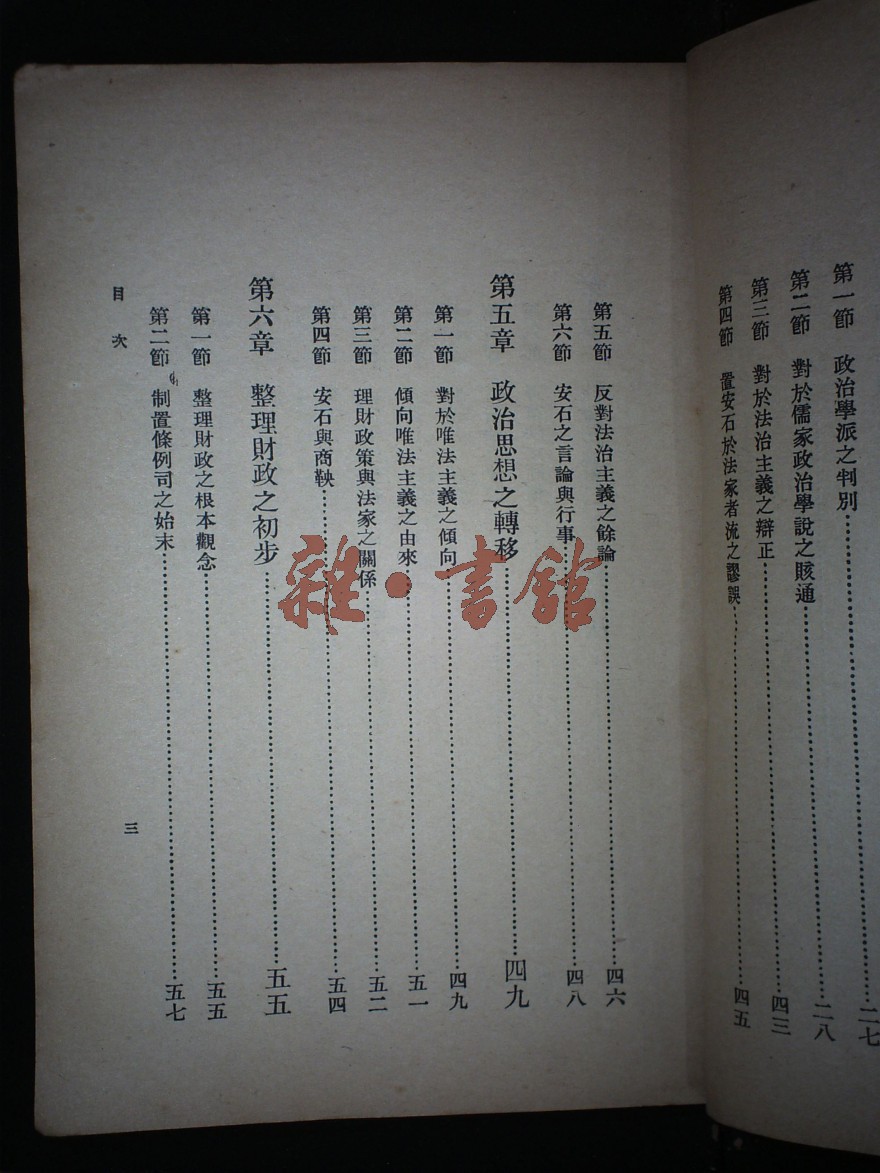 第一節 政治學派之判別……二七
第二節 對於儒家政治學說之賅通……二八
第三節 對於法治主義之辯正……四三
第四節 置安石於法家者流之謬誤……四五
第五節 反對法治主義之餘論……四六
第六節 安石之言論與行事……四八
第五章 政治思想之轉移……四九
第一節 對於唯法主義之傾向……四九
第二節 傾向唯法主義之由來……五一
第三節 理財政策與法家之關係……五二
第四節 安石與商鞅……五四
第六章 整理財政之初步……五五
第一節 整理財政之根本觀念……五五
第二節 制置條例司之始末……五七
目次
三
雜·書館